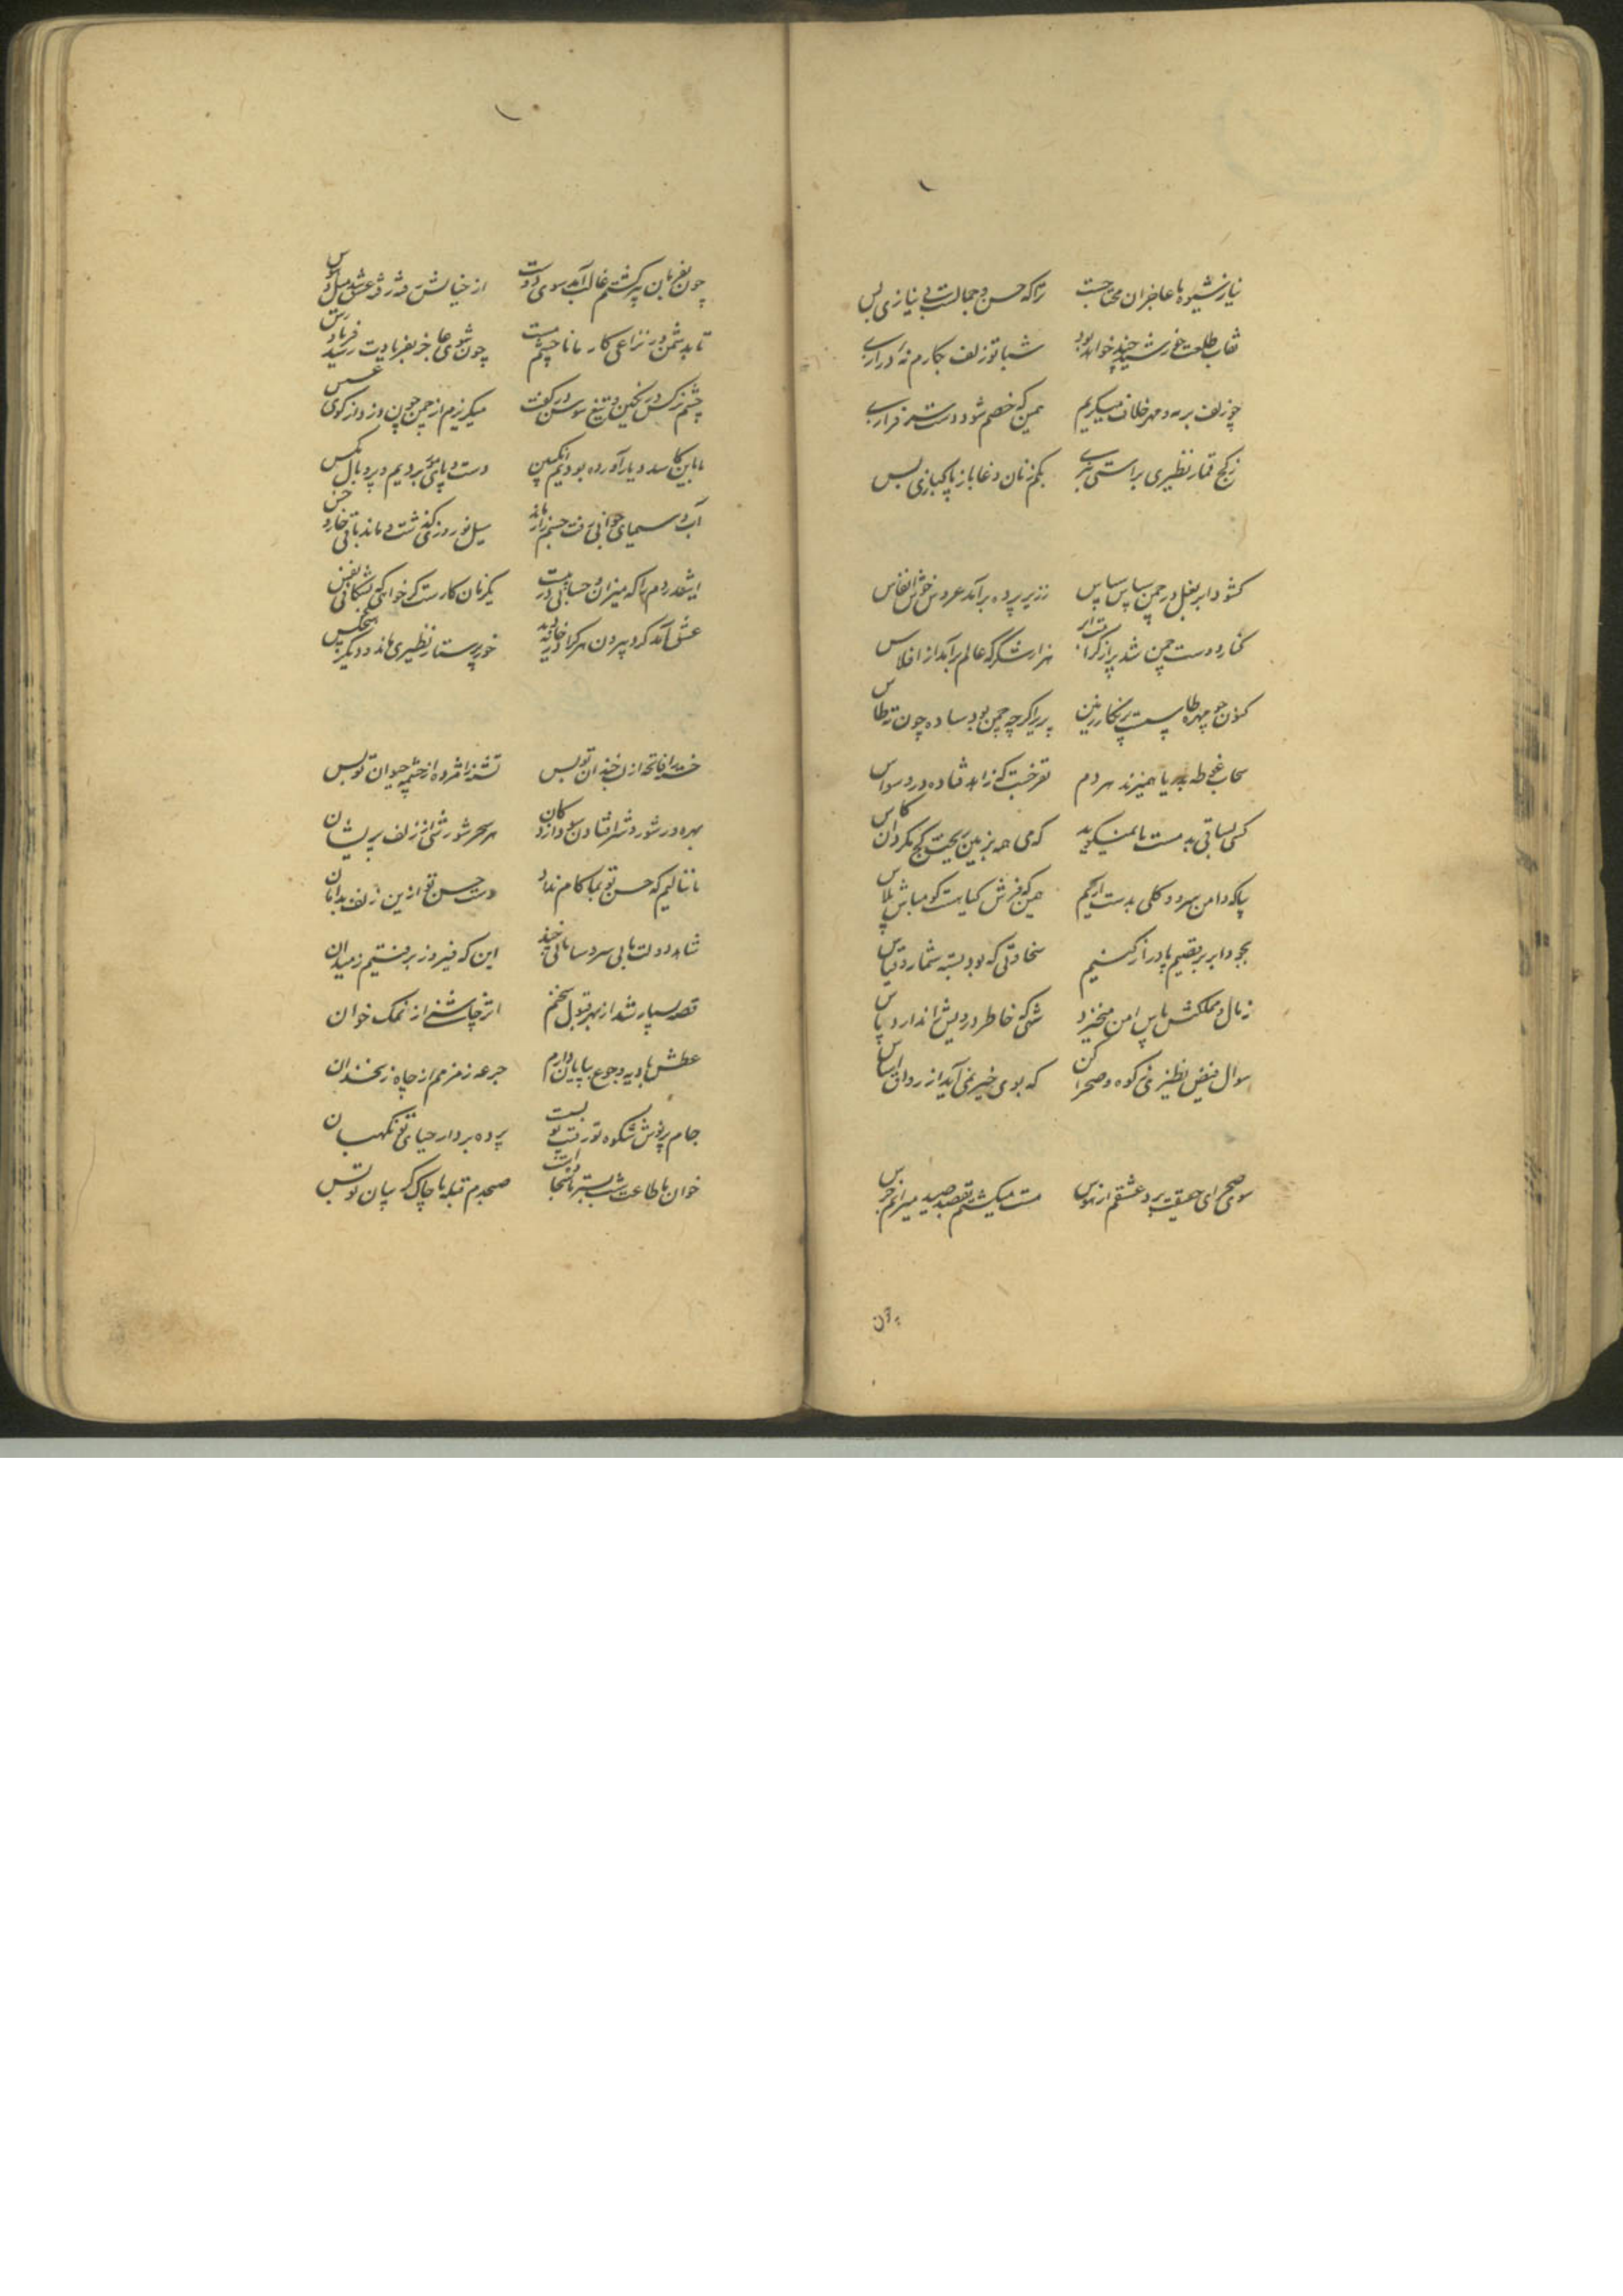 نیاز شیوه ما عاجزان محتاجست ترا که حسن و جمالست بی نیازی بس
نقاب طلعت خورشید چند خواهد بود شبا تو زلف نگارم نه درازی بس
چو زلف بر مه و مهر خلاف میکریم همین که خصم شود دوست
ز کج قمار نظیری براستی بکم زنان دغا باز پاکبازی بس
کشود ابر بغل در چمن سپاس سپاس ز زیر پرده برآمد عروس خوش انفاس
کنار دوست چمن شد پر از هزار شکر که عالم برآمد از افلاس
کنون چو چهره طاوست پر نگار زمین پریر اگرچه چمن بود ساده چون قرطاس
سحاب غوطه بدریا همیزند هر دم که زاهد فتاده در وسواس
کسی بساقی بدمست ما نمیکوید که می همه بزمین ریخت کج مکردان کاس
پیاله دامن سرو و کلی بدست اریم همین که فرش کیاهست کو مباش پلاس
بجود ابر برقصیم پا دراز کنیم سخاوتی که بود بسته شمار و قیاس
ز مال و مملکتش پاس امن میخیزد شهی که خاطر درویش را ندارد پاس
سوال فیض نظیری ز کوه و صحرا کن که بوی خیر نمی آید از رواق اساس
سوی صحرای حقیقت برد عشقم از هوس مست میکشتم بقصد صید میراندم فرس
چون
چون بفرمان پیر کشتم غالب آمد سوی دوست از خیالش رفته رفته عشق شد
تا بدشمن در نزاعی کار ما ناچیم هست چون شوی عاجز بفریادت رسد فریادرس
چشم نرکس در کمین و تیغ سوسن در کفست میکریزم از چمن چون دزد از کوی عسس
ما باین کاسد دیار آورده بودیم انکبین دست و پای مور بردیم و پر و بال مکس
آب و سیمای جوانی رفت جسم زار ماند سیل نوروزی کذشت و ماند باقی خار و خس
اینقدر دانم که میزان و حسابی در یکزمان کارست کر خواهی که بشکافی نفس
عشق آمد کرد بیرون هر کرا در خانه دید خود پرستار نظیری ماند و دیکر هیچکس
خسته را فاتحه از لب خندان تو بس تشنه را مژده از چشمه حیوان تو بس
بهره در شور و شر افتادن سودازدکان هر سحر شورشی از زلف پریشان
ما ننالیم که حسن تو بما کام نداد دست حسن تو ازین زلف بدامان
شاهد دولت ما بی سر و سامانی چند این که فیروز برفتیم ز میدان
قصه بسیار شد از بهر قبول سخنم اثر چاشنی از نمک خوان
عطش بادیه و جوع بیابان دارم جرعه زمزمم از چاه زنخدان
جام پرنوش شکوه تو رقیب تو بست پرده بردار حیای تو نکهبان
خوان ما طاعت شب بستر ما صبحدم قبله ما چاک کریبان تو بس